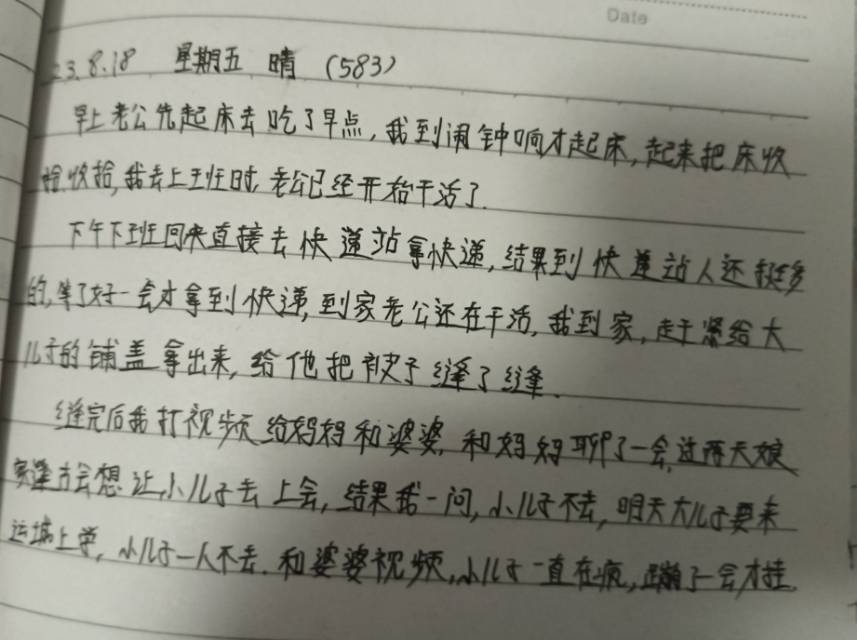 Date
23.8.18 星期五 晴 (583)
早上老公先起床去吃了早点,我到闹钟响才起床,起来把床收
拾收拾,我去上班时,老公已经开始干活了.
下午下班回来直接去快递站拿快递,结果到快递站人还挺多
的,等了好一会才拿到快递,到家老公还在干活,我到家,赶紧给大
儿子的铺盖拿出来,给他把被子缝了缝.
缝完后我打视频给妈妈和婆婆,和妈妈聊了一会,这两天娘
家逢古会想让小儿子去上会,结果我一问,小儿子不去,明天大儿子要来
运城上学,小儿子一人不去.和婆婆视频,小儿子一直在疯,蹦了一会才挂.